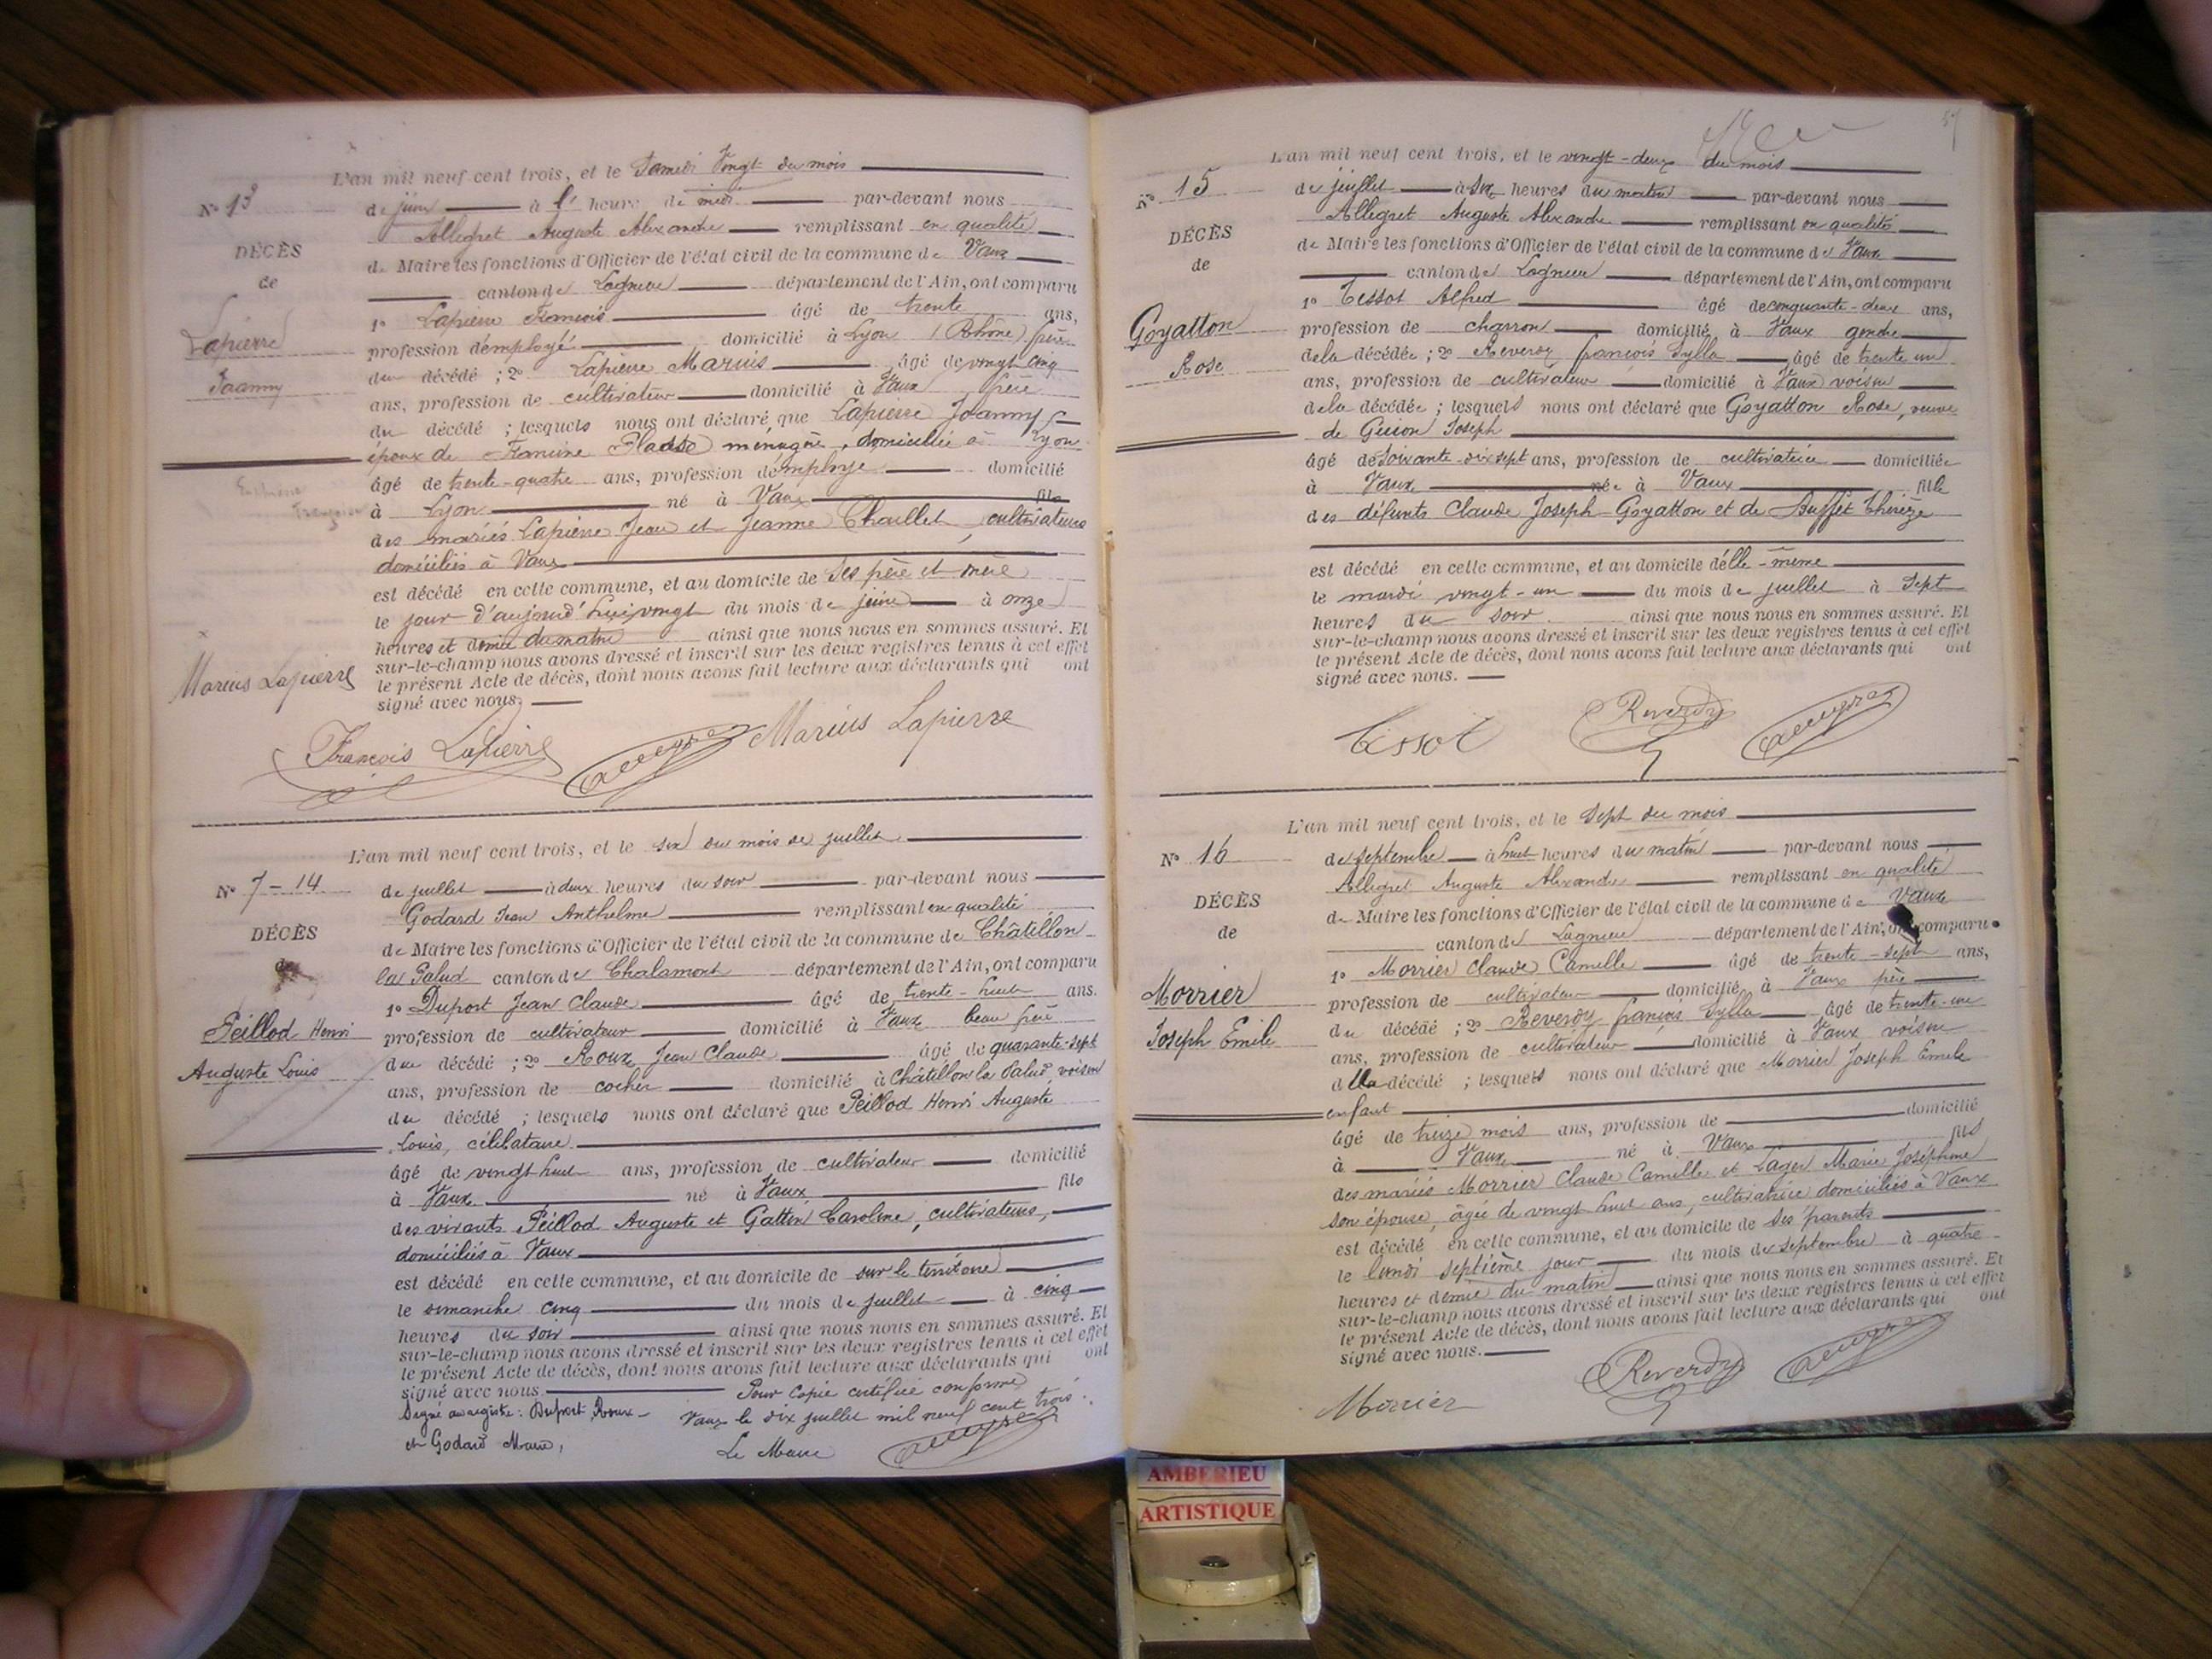 L'an mil neuf cent trois, et le Samedi Vingt du mois
N° 13
de juin à l' heure de midi par-devant nous
Allegret Auguste Alexandre remplissant en qualité
DÉCÈS
de Maire les fonctions d'Officier de l'état civil de la commune de Vaux
de
canton de Lagnieu département de l'Ain, ont comparu
Lapierre
1° Lapierre François âgé de trente ans,
profession d'employé domicilié à Lyon (Rhône) frère
Joanny
du décédé ; 2° Lapierre Marius âgé de vingt cinq
ans, profession de cultivateur domicilié à Vaux frère
du décédé ; lesquels nous ont déclaré que Lapierre Joanny
époux de Francine ménagère, domiciliée à Lyon
âgé de trente-quatre ans, profession d'employé domicilié
à Lyon né à Vaux fils
des mariés Lapierre Jean et Jeanne Chaillet, cultivateurs
domiciliés à Vaux
est décédé en cette commune, et au domicile de Ses père et mère
le jour d'aujourd'hui vingt du mois de juin à onze
heures et demie du matin ainsi que nous nous en sommes assuré. Et
sur-le-champ nous avons dressé et inscrit sur les deux registres tenus à cet effet
Marius Lapierre
le présent Acte de décès, dont nous avons fait lecture aux déclarants qui ont
signé avec nous.
François Lapierre
Marius Lapierre
L'an mil neuf cent trois, et le six du mois de juillet
N° 7 - 14
de juillet à deux heures du soir par-devant nous
Godard Jean Anthelme remplissant en qualité
DÉCÈS
de Maire les fonctions d'Officier de l'état civil de la commune de Châtillon
de
la Palud canton de Chalamont département de l'Ain, ont comparu
1° Duport Jean Claude âgé de trente-huit ans.
Peillod Henri
profession de cultivateur domicilié à Vaux beau frère
Auguste Louis
du décédé ; 2° Roux Jean Claude âgé de quarante-sept
ans, profession de cocher domicilié à Châtillon la Palud, voisin
du décédé ; lesquels nous ont déclaré que Peillod Henri Auguste
Louis, célibataire
âgé de vingt huit ans, profession de cultivateur domicilié
à Vaux né à Vaux fils
des vivants Peillod Auguste et Gattin Caroline, cultivateurs,
domiciliés à Vaux
est décédé en cette commune, et au domicile de sur le territoire
le dimanche cinq du mois de juillet à cinq
heures du soir ainsi que nous nous en sommes assuré. Et
sur-le-champ nous avons dressé et inscrit sur les deux registres tenus à cet effet
le présent Acte de décès, dont nous avons fait lecture aux déclarants qui ont
signé avec nous. Pour copie certifiée conforme
Signé au registre : Duport, Roux Vaux le dix juillet mil neuf cent trois.
et Godard Maire, Le Maire
57
L'an mil neuf cent trois, et le vingt-deux du mois
N° 15
de juillet à six heures du matin par-devant nous
Allegret Auguste Alexandre remplissant en qualité
DÉCÈS
de Maire les fonctions d'Officier de l'état civil de la commune de Vaux
de
canton de Lagnieu département de l'Ain, ont comparu
1° Tissot Alfred âgé de cinquante-deux ans,
Goyatton
profession de charron domicilié à Vaux gendre
Rose
de la décédée ; 2° Reverdy françois Sylla âgé de trente un
ans, profession de cultivateur domicilié à Vaux voisin
de la décédée ; lesquels nous ont déclaré que Goyatton Rose, veuve
de Joseph
âgé de Soixante-dix sept ans, profession de cultivatrice domiciliée
à Vaux née à Vaux fille
des défunts Claude Joseph Goyatton et de Buffet Thérèze
est décédé en cette commune, et au domicile d'elle-même
le mardi vingt-un du mois de juillet à Sept
heures du soir. ainsi que nous nous en sommes assuré. Et
sur-le-champ nous avons dressé et inscrit sur les deux registres tenus à cet effet
le présent Acte de décès, dont nous avons fait lecture aux déclarants qui ont
signé avec nous.
Tissot Reverdy
L'an mil neuf cent trois, et le Sept du mois
N° 16
de septembre à huit heures du matin par-devant nous
Allegret Auguste Alexandre remplissant en qualité
DÉCÈS
de Maire les fonctions d'Officier de l'état civil de la commune de Vaux
de
canton de Lagnieu département de l'Ain, ont comparu
1° Morrier Claude Camille âgé de trente-sept ans,
Morrier
profession de cultivateur domicilié à Vaux père
Joseph Emile
du décédé ; 2° Reverdy françois Sylla âgé de trente-un
ans, profession de cultivateur domicilié à Vaux voisin
décédé ; lesquels nous ont déclaré que Morrier Joseph Emile
enfant
âgé de treize mois ans, profession de domicilié
à Vaux né à Vaux fils
des mariés Morrier Claude Camille et Lager Marie Joséphine
son épouse, âgée de vingt huit ans, cultivatrice domiciliés à Vaux
est décédé en cette commune, et au domicile de Ses parents
le lundi septième jour du mois de septembre à quatre
heures et demie du matin ainsi que nous nous en sommes assuré. Et
sur-le-champ nous avons dressé et inscrit sur les deux registres tenus à cet effet
le présent Acte de décès, dont nous avons fait lecture aux déclarants qui ont
signé avec nous.
Morrier Reverdy
AMBERIEU
ARTISTIQUE